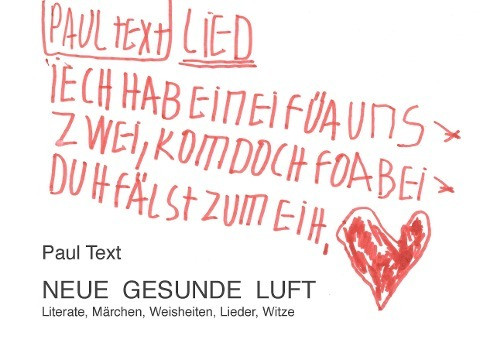 PAUL tEXt LIED
IECH HAB EIN EI FÜA UNS
ZWEI, KOM DOCH FOABEI
DUH FÄLST ZUM EIH,
Paul Text
NEUE GESUNDE LUFT
Literate, Märchen, Weisheiten, Lieder, Witze